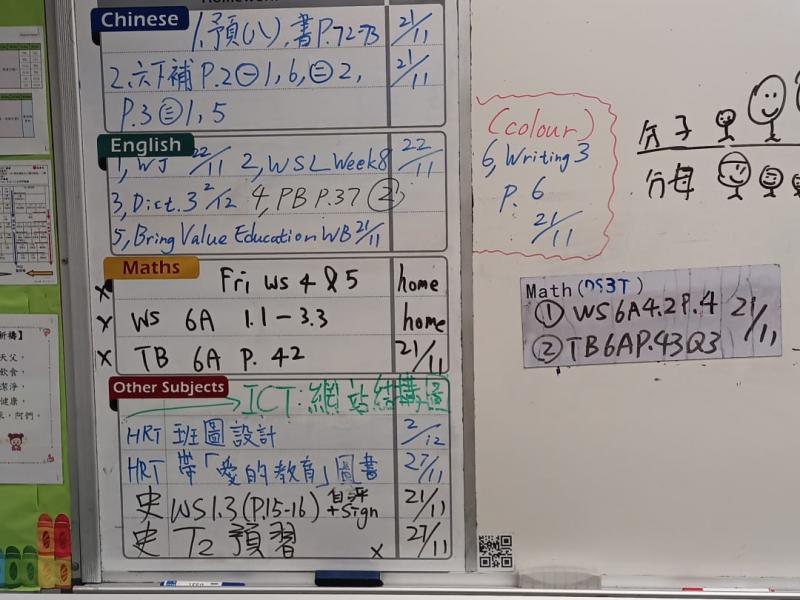 Chinese
1. 預(八), 書P.72-73 21/11
2. 六下補 P.2㊀1, 6, ㊂2, 21/11
P.3㊂1, 5
English
1, WJ 22/11 2, WSL Week8 22/11
3, Dict.3 2/12 4, PB P.37 ②
5, Bring Value Education WB 21/11
(colour)
6, Writing 3
P. 6
21/11
分子
分母
Maths
x Fri WS 4 & 5 home
x WS 6A 1.1-3.3 home
x TB 6A P. 42 21/11
Math (DS3T)
① WS 6A4.2P.4 21/11
② TB6AP.43Q3
Other Subjects
ICT: 網站結構圖
HRT 班圖設計 2/12
HRT 帶「愛的教育」圖書 27/11
史 WS1.3 (P.15-16) 自評 + Sign 21/11
史 T2 預習 x 27/11
天父,
飲食,
潔淨,
健康,
阿們。